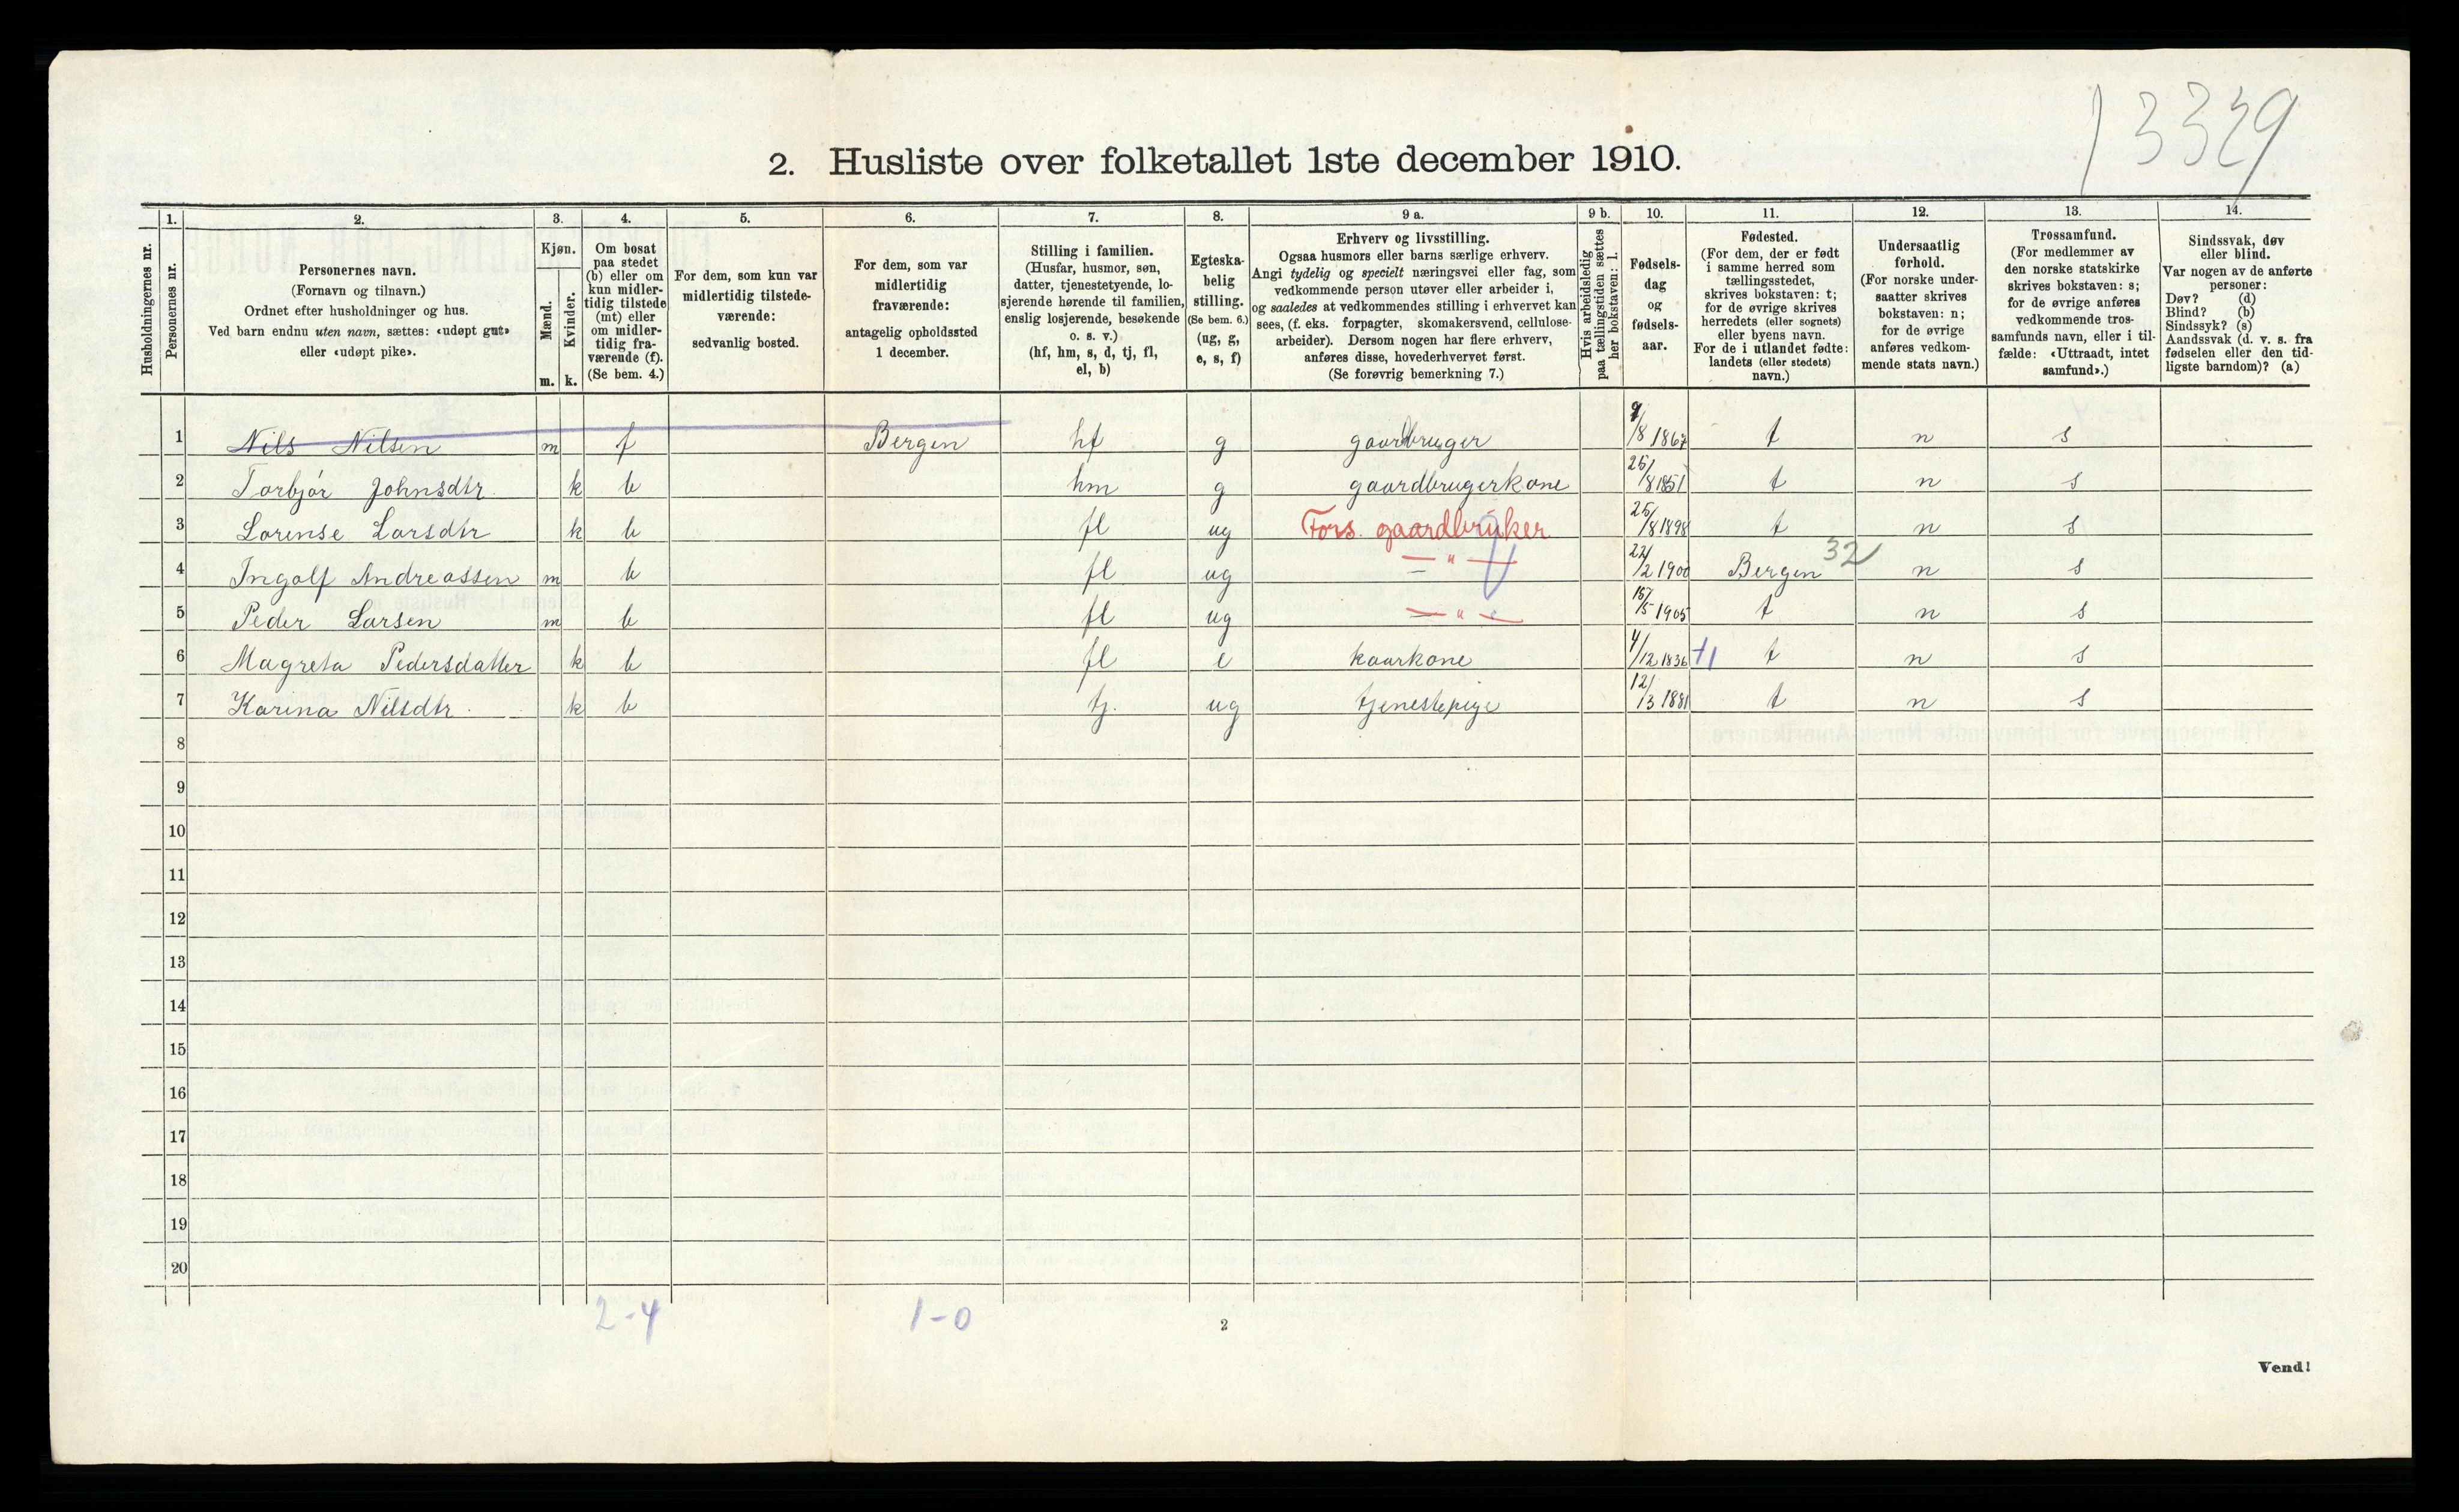 13329
2. Husliste over folketallet 1ste december 1910.
Husholdningernes nr.
1.
Personernes nr.
2.
Personernes navn.
(Fornavn og tilnavn.)
Ordnet efter husholdninger og hus.
Ved barn endnu uten navn, sættes: «udøpt gut»
eller «udøpt pike».
3.
Kjøn.
Mænd.
Kvinder.
m. k.
4.
Om bosat
paa stedet
(b) eller om
kun midler-
tidig tilstede
(mt) eller
om midler-
tidig fra-
værende (f).
(Se bem. 4.)
5.
For dem, som kun var
midlertidig tilstede-
værende:
sedvanlig bosted.
6.
For dem, som var
midlertidig
fraværende:
antagelig opholdssted
1 december.
7.
Stilling i familien.
(Husfar, husmor, søn,
datter, tjenestetyende, lo-
sjerende hørende til familien,
enslig losjerende, besøkende
o. s. v.)
(hf, hm, s, d, tj, fl,
el, b)
8.
Egteska-
belig
stilling.
(Se bem. 6.)
(ug, g,
e, s, f)
9 a.
Erhverv og livsstilling.
Ogsaa husmors eller barns særlige erhverv.
Angi tydelig og specielt næringsvei eller fag, som
vedkommende person utøver eller arbeider i,
og saaledes at vedkommendes stilling i erhvervet kan
sees, (f. eks. forpagter, skomakersvend, cellulose-
arbeider). Dersom nogen har flere erhverv,
anføres disse, hovederhvervet først.
(Se forøvrig bemerkning 7.)
9 b.
Hvis arbeidsledig
paa tællingstiden sættes
her bokstaven: l.
10.
Fødsels-
dag
og
fødsels-
aar.
11.
Fødested.
(For dem, der er født
i samme herred som
tællingsstedet,
skrives bokstaven: t;
for de øvrige skrives
herredets (eller sognets)
eller byens navn.
For de i utlandet fødte:
landets (eller stedets)
navn.)
12.
Undersaatlig
forhold.
(For norske under-
saatter skrives
bokstaven: n;
for de øvrige
anføres vedkom-
mende stats navn.)
13.
Trossamfund.
(For medlemmer av
den norske statskirke
skrives bokstaven: s;
for de øvrige anføres
vedkommende tros-
samfunds navn, eller i til-
fælde: «Uttraadt, intet
samfund».)
14.
Sindssvak, døv
eller blind.
Var nogen av de anførte
personer:
Døv? (d)
Blind? (b)
Sindssyk? (s)
Aandssvak (d. v. s. fra
fødselen eller den tid-
ligste barndom)? (a)
1 Nils Nilsen m f Bergen hf g gaardbruger 9/8 1867 t n s
2 Torbjør Johnsdtr. k b hm g gaardbrugerkone 25/8 1851 t n s
3 Lorense Larsdtr k b fl ug Fors. gaardbruker 26/8 1898 t n s
4 Ingolf Andreassen m b fl ug — " — 22/2 1900 Bergen 32 n s
5 Peder Larsen m b fl ug — " — 15/5 1905 t n s
6 Magreta Pedersdatter k b fl e kaarkone 4/12 1836 +1 t n s
7 Karina Nilsdtr. k b tj. ug tjenestepige 12/3 1881 t n s
8
9
10
11
12
13
14
15
16
17
18
19
20
2-4 1-0
2
Vend!